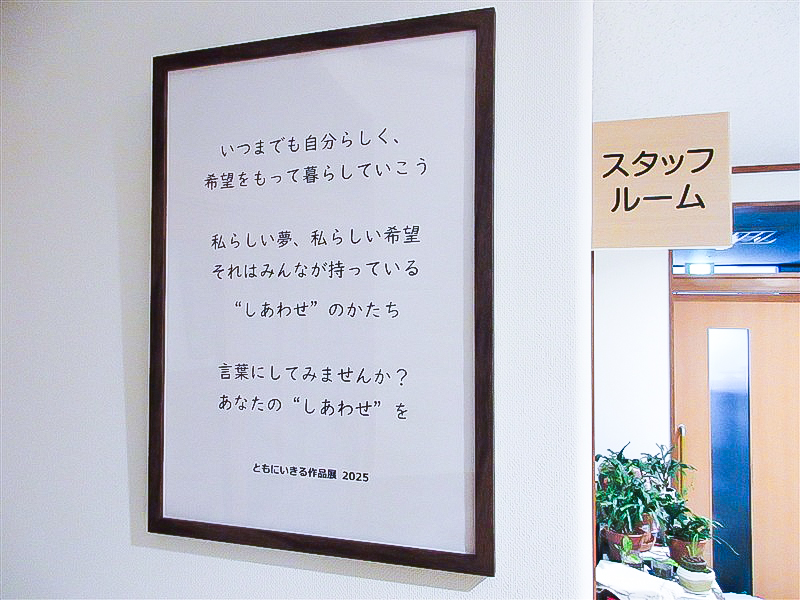 いつまでも自分らしく、
希望をもって暮らしていこう
私らしい夢、私らしい希望
それはみんなが持っている
“しあわせ”のかたち
言葉にしてみませんか？
あなたの“しあわせ”を
ともにいきる作品展 2025
スタッフ
ルーム